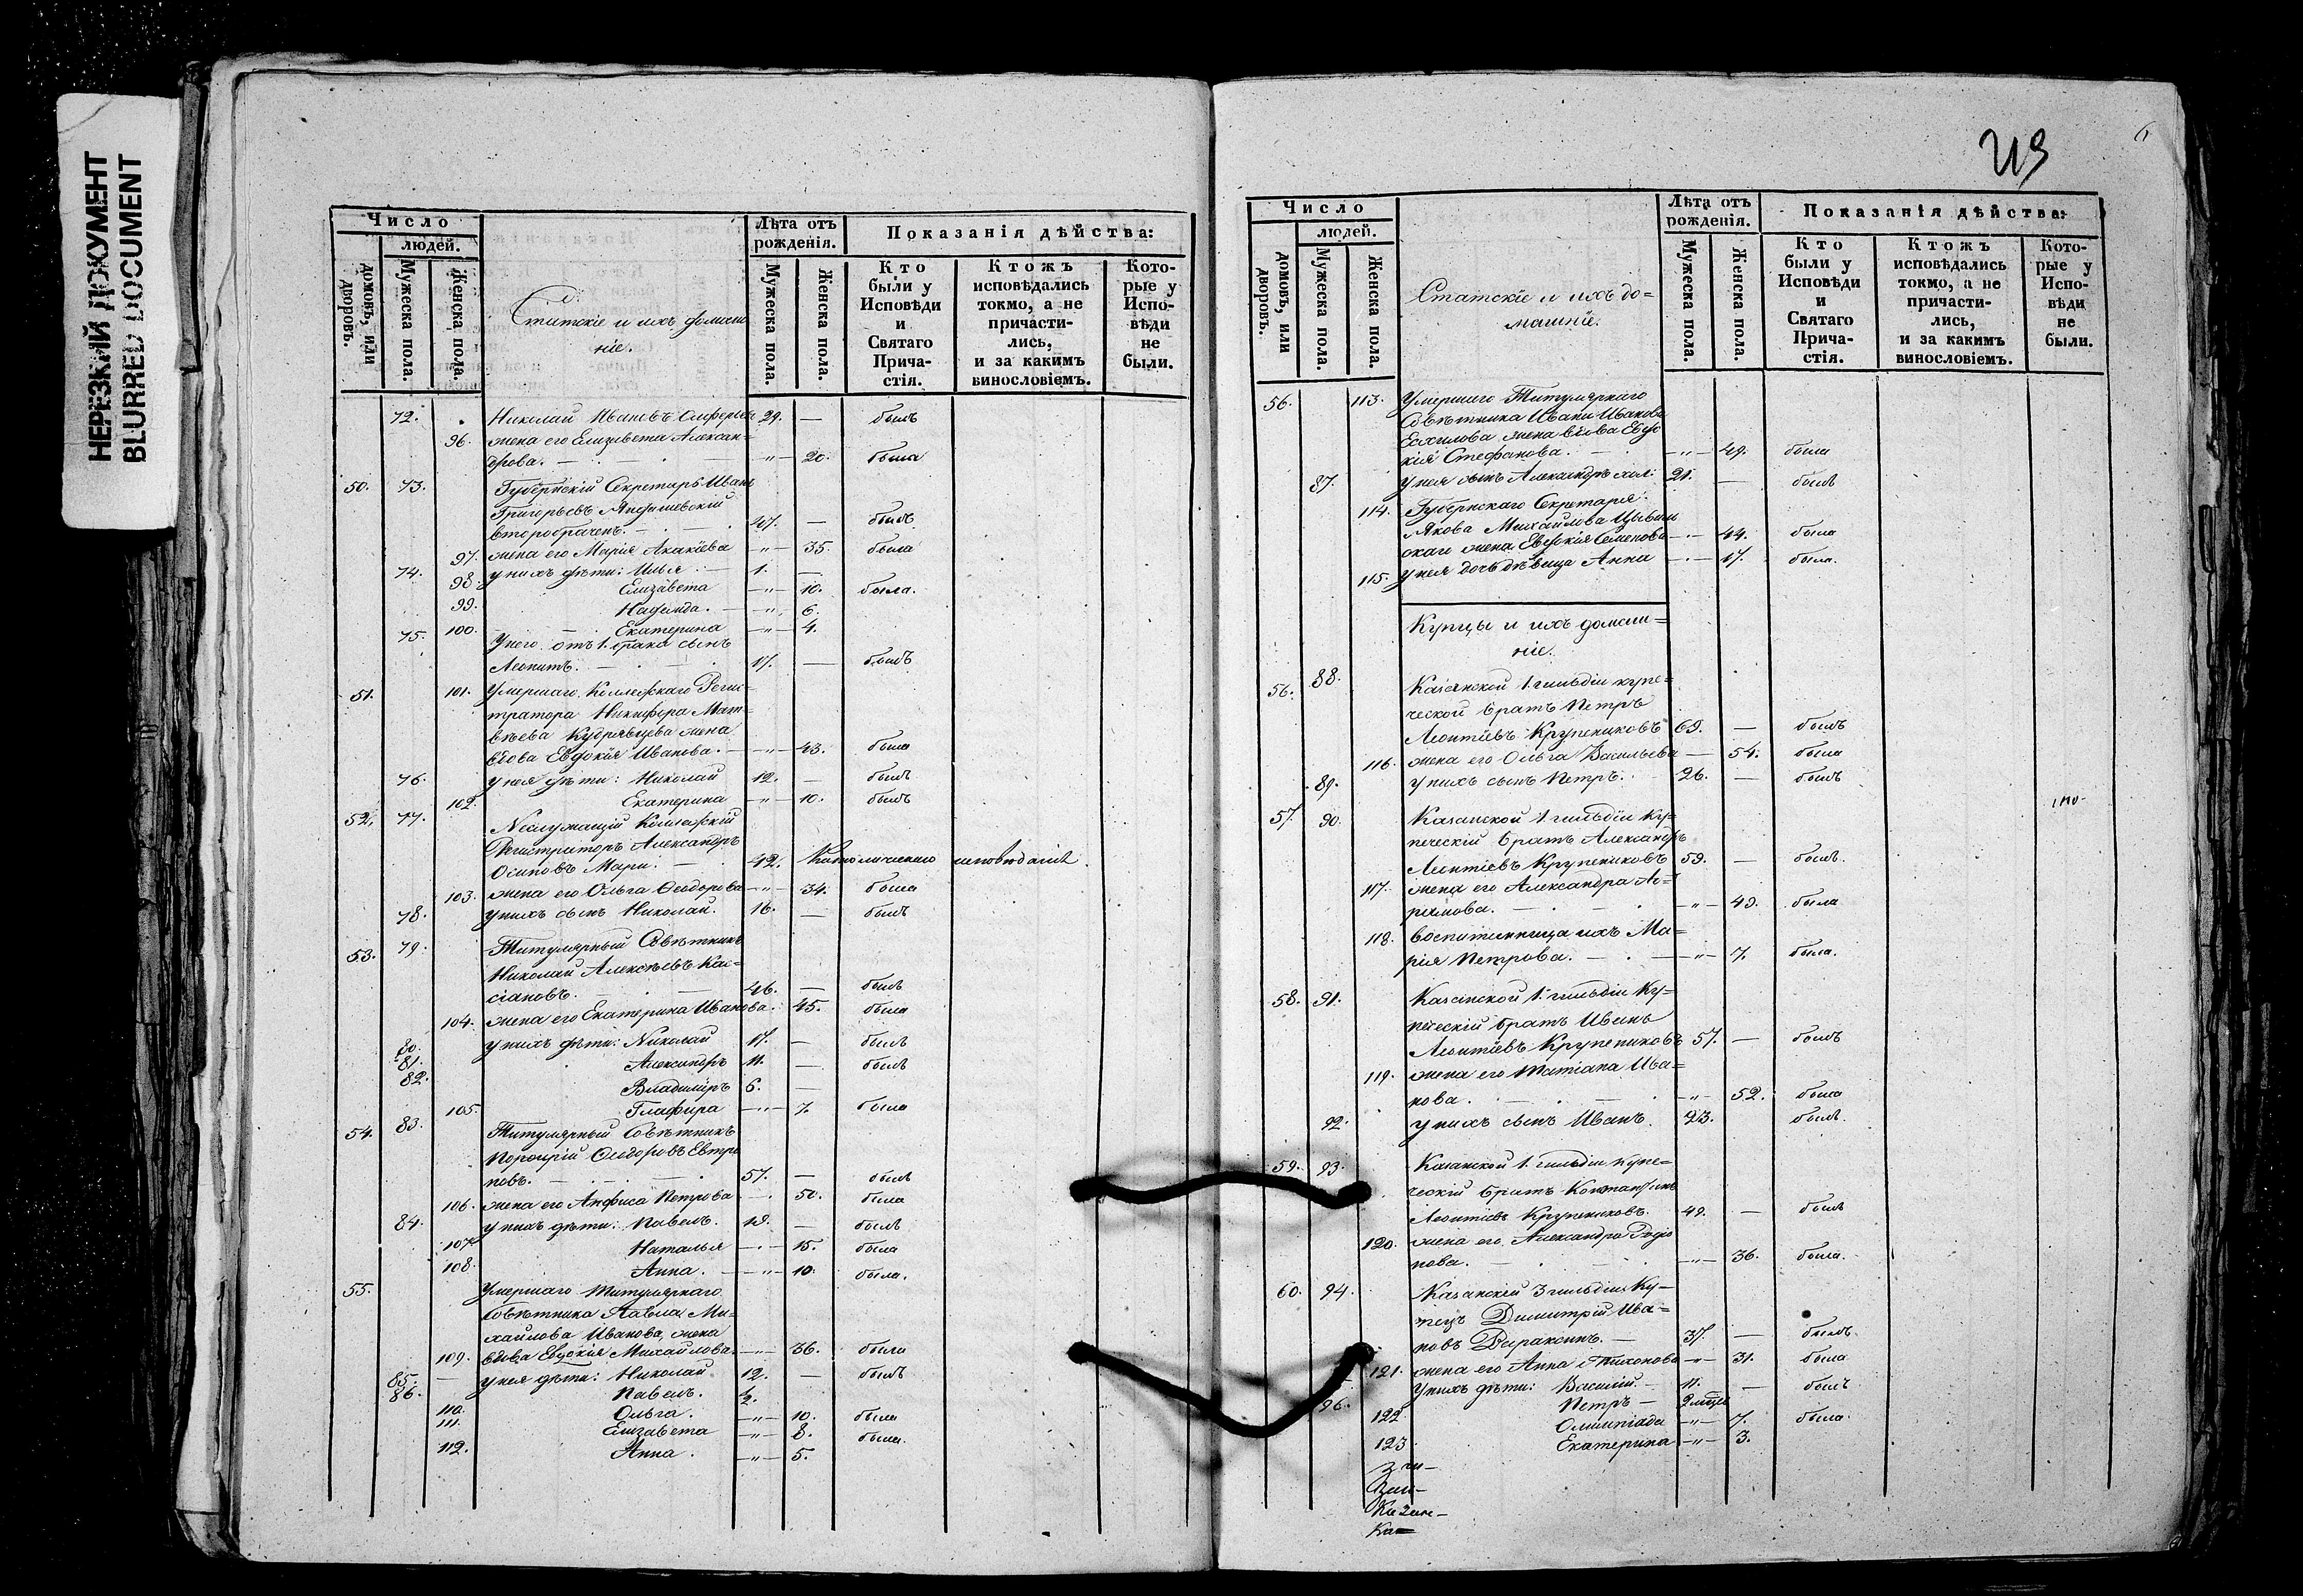 НЕРЕЗКИЙ ДОКУМЕНТ
BLURRED DOCUMENT
Число
людей.
домовъ, или дворовъ.
Мужеска пола.
Женска пола.
Статскіе и ихъ домаш
ніе.
Лѣта отъ рожденія.
Мужеска пола.
Женска пола.
Показанія дѣйства:
Кто были у Исповѣди и Святаго Прича-стія.
Ктожъ исповѣдались токмо, а не причасти-лись, и за какимъ винословіемъ.
Кото-рые у Испо-вѣди не были.
72. Николай Ивановъ 29. — былъ
96. жена его Елизавета Алексан=
дрова. — — " — 20. была
50. 73. Губернскій Секретарь Иванъ
Григорьевъ
второбраченъ. — 47. — былъ
97. жена его Марія Акакіева — " — 35. была
74. у нихъ дѣти: Илья — 1. —
98. Елизавета — " — 10. была.
99. Надежда. — " — 6.
100. Екатерина — " — 4.
75. У него отъ 1. брака сынъ
Леонитъ. — 17. — былъ
51. 101. Умершаго Коллежскаго Реги=
стратора Никифора Мат=
вѣева Кудрявцева жена
вдова Евдокія Иванова. — " — 43. была
76. у нея дѣти: Николай 12. — былъ
102. Екатерина — " — 10. былъ
52. 77. Неслужащій Коллежскій
Регистраторъ Александръ
Осиповъ Мари. — 42. Католическаго исповѣданія.
103. жена его Ольга Ѳеодорова — " — 34. была
78. у нихъ сынъ Николай. 16. — былъ
53. 79. Титулярный Совѣтникъ
Николай Алексѣевъ Кас=
сіановъ. — 46. — былъ
104. жена его Екатерина Иванова. 45. была
80. у нихъ дѣти: Николай 17. — былъ
81. Александръ 11. — былъ
82. Владиміръ 6. —
105. Глафира — " — 7. была
54. 83. Титулярный Совѣтникъ
Порфирій Ѳеодоровъ Евтро
повъ. — 57. — былъ
106. жена его Анфиса Петрова — 50. была
84. у нихъ дѣти: Павелъ. 19. — былъ
107. Наталья — " — 15. была
108. Анна. — " — 10. была.
55. Умершаго Титулярнаго
Совѣтника Павла Ми=
хайлова Иванова, жена
109. вдова Евдокія Михайлова. — " — 36. была
85. — у нея дѣти: Николай 12. — былъ
86. Павелъ. ½.
110. Ольга. — " — 10. была
111. Елизавета — " — 8. была.
112. Анна. — " — 5.
6
Число
людей.
домовъ, или дворовъ.
Мужеска пола.
Женска пола.
Статскіе и ихъ до=
машніе.
Лѣта отъ рожденія.
Мужеска пола.
Женска пола.
Показанія дѣйства:
Кто были у Исповѣди и Святаго Прича-стія.
Ктожъ исповѣдались токмо, а не причасти-лись, и за какимъ винословіемъ.
Кото-рые у Испо-вѣди не были.
56. 113. Умершаго Титулярнаго
Совѣтника Ивана Иванова
жена вдова Евдо
кія Стефанова. — " — 49. была
87. у нея сынъ Александръ хол: 21. — былъ
114. Губернскаго Секретаря
Якова Михайлова
скаго жена Евдокія Семенова — " — 44. была
115. у нея дочь дѣвица Анна — " — 17. была.
Купцы и ихъ домаш=
ніе.
56. 88. Казанской 1. гильдіи купе=
ческой братъ Петръ
Леонтіевъ Крупениковъ 69. — былъ
116. жена его Ольга Васильева — 54. была
89. у нихъ сынъ Петръ. 26. — былъ
57. 90. Казанской 1. гильдіи Ку=
печескій братъ Александръ
Леонтіевъ Крупениковъ 59. — былъ.
117. жена его Александра Аѳ=
— " — 49. была
118. воспитанница ихъ Ма=
рія Петрова. — " — 7. была.
58. 91. Казанской 1. гильдіи Ку=
печескій братъ Иванъ
Леонтіевъ Крупениковъ 57. — былъ
119. жена его Татіана Ива=
нова. — " — 52. была
92. у нихъ сынъ Иванъ. 23. — былъ.
59. 93. Казанской 1. гильдіи купе=
ческій братъ Константинъ
Леонтіевъ Крупениковъ. 49. — былъ
120. жена его Александра Родіо
нова. — " — 36. была.
60. 94. Казанскій 3 гильдіи Ку=
пецъ Димитрій Ива=
новъ — 37. — былъ.
121. жена его Анна Тихонова — " — 31. была
У нихъ дѣти: Василій. — 11. — былъ
96. Петръ — 2 мѣсяц
122. Олимпіада — " — 7. была.
123. Екатерина — " — 3.